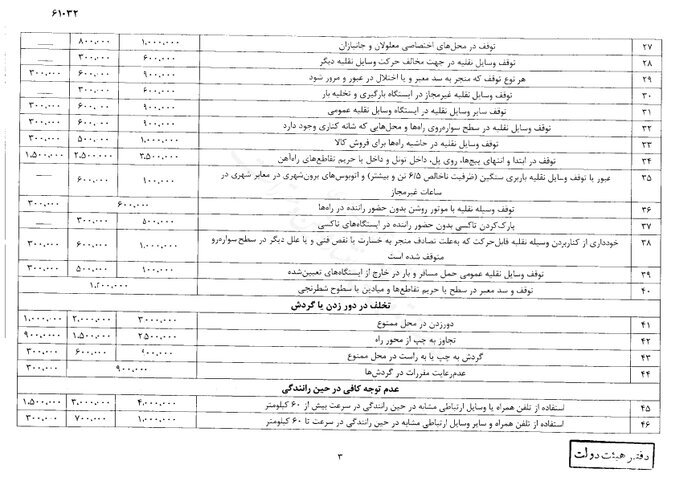 ۶۱۰۳۲
۲۷ توقف در محل‌های اختصاصی معلولان و جانبازان ۱،۰۰۰،۰۰۰ ۸۰۰،۰۰۰ ــــ
۲۸ توقف وسایل نقلیه در جهت مخالف حرکت وسایل نقلیه دیگر ۶۰۰،۰۰۰ ۳۰۰،۰۰۰ ــــ
۲۹ هر نوع توقف که منجر به سد معبر و یا اختلال در عبور و مرور شود ۹۰۰،۰۰۰ ۶۰۰،۰۰۰ ۳۰۰،۰۰۰
۳۰ توقف وسایل نقلیه غیرمجاز در ایستگاه بارگیری و تخلیه بار ۶۰۰،۰۰۰ ۳۰۰،۰۰۰ ــــ
۳۱ توقف سایر وسایل نقلیه در ایستگاه وسایل نقلیه عمومی ۹۰۰،۰۰۰ ۶۰۰،۰۰۰ ۳۰۰،۰۰۰
۳۲ توقف وسایل نقلیه در سطح سواره‌روی راه‌ها و محل‌هایی که شانه کناری وجود دارد ۹۰۰،۰۰۰ ۶۰۰،۰۰۰ ۳۰۰،۰۰۰
۳۳ توقف وسایل نقلیه در حاشیه راه‌ها برای فروش کالا ۱،۰۰۰،۰۰۰ ۵۰۰،۰۰۰ ۳۰۰،۰۰۰
۳۴ توقف در ابتدا و انتهای پیچ‌ها، روی پل، داخل تونل و داخل یا حریم تقاطع‌های راه‌آهن ۳،۵۰۰،۰۰۰ ۲،۵۰۰،۰۰۰ ۱،۵۰۰،۰۰۰
۳۵ عبور یا توقف وسایل نقلیه باربری سنگین (ظرفیت ناخالص ۶/۵ تن و بیشتر) و اتوبوس‌های برون‌شهری در معابر شهری در ۱۰۰،۰۰۰ ۶۰۰،۰۰۰ ــــ
ساعات غیرمجاز
۳۶ توقف وسیله نقلیه با موتور روشن بدون حضور راننده در راه‌ها ۶۰۰،۰۰۰ ۳۰۰،۰۰۰
۳۷ پارک‌کردن تاکسی بدون حضور راننده در ایستگاه‌های تاکسی ۵۰۰،۰۰۰ ۳۰۰،۰۰۰ ــــ
۳۸ خودداری از کناربردن وسیله نقلیه قابل‌حرکت که به‌علت تصادف منجر به خسارت یا نقص فنی و یا علل دیگر در سطح سواره‌رو ۱،۰۰۰،۰۰۰ ۶۰۰،۰۰۰ ۳۰۰،۰۰۰
متوقف شده است
۳۹ توقف وسایل نقلیه عمومی حمل مسافر و بار در خارج از ایستگاه‌های تعیین‌شده ۱۰۰،۰۰۰ ۵۰۰،۰۰۰ ۳۰۰،۰۰۰
۴۰ توقف و سد معبر در سطح یا حریم تقاطع‌ها و میادین یا سطوح شطرنجی ۱،۲۰۰،۰۰۰
تخلف در دور زدن یا گردش
۴۱ دورزدن در محل ممنوع ۳،۰۰۰،۰۰۰ ۲،۰۰۰،۰۰۰ ۱،۰۰۰،۰۰۰
۴۲ تجاوز به چپ از محور راه ۲،۵۰۰،۰۰۰ ۱،۵۰۰،۰۰۰ ۹۰۰،۰۰۰
۴۳ گردش به چپ یا به راست در محل ممنوع ۹۰۰،۰۰۰ ۶۰۰،۰۰۰ ۳۰۰،۰۰۰
۴۴ عدم‌رعایت مقررات در گردش‌ها ۹۰۰،۰۰۰ ۳۰۰،۰۰۰
عدم توجه کافی در حین رانندگی
۴۵ استفاده از تلفن همراه یا وسایل ارتباطی مشابه در حین رانندگی در سرعت بیش از ۶۰ کیلومتر ۴،۰۰۰،۰۰۰ ۳،۰۰۰،۰۰۰ ۱،۵۰۰،۰۰۰
۴۶ استفاده از تلفن همراه و سایر وسایل ارتباطی مشابه در حین رانندگی در سرعت تا ۶۰ کیلومتر ۱،۰۰۰،۰۰۰ ۷۰۰،۰۰۰ ۳۰۰،۰۰۰
۳
دفتر هیئت دولت